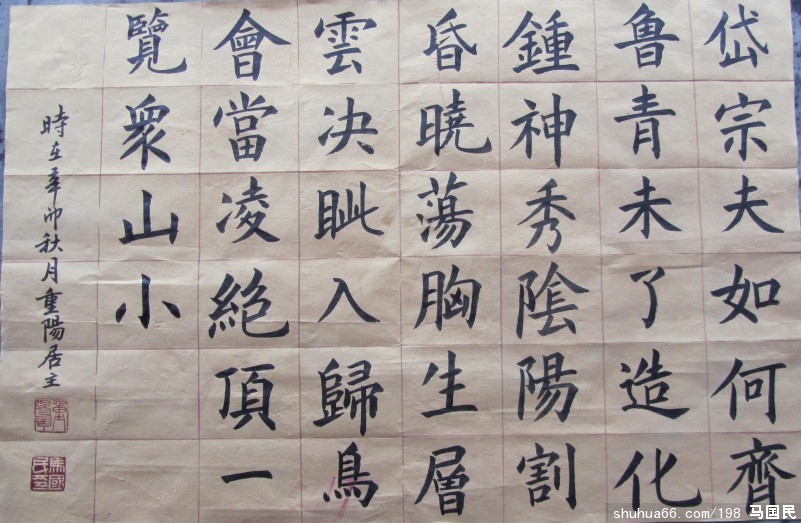 岱宗夫如何齊
魯青未了造化
鍾神秀陰陽割
昏曉蕩胸生層
雲決眦入歸鳥
會當凌絕頂一
覽衆山小
時在辛卯秋月重陽居主
馬國民印
shuhua66.com/198 马国民